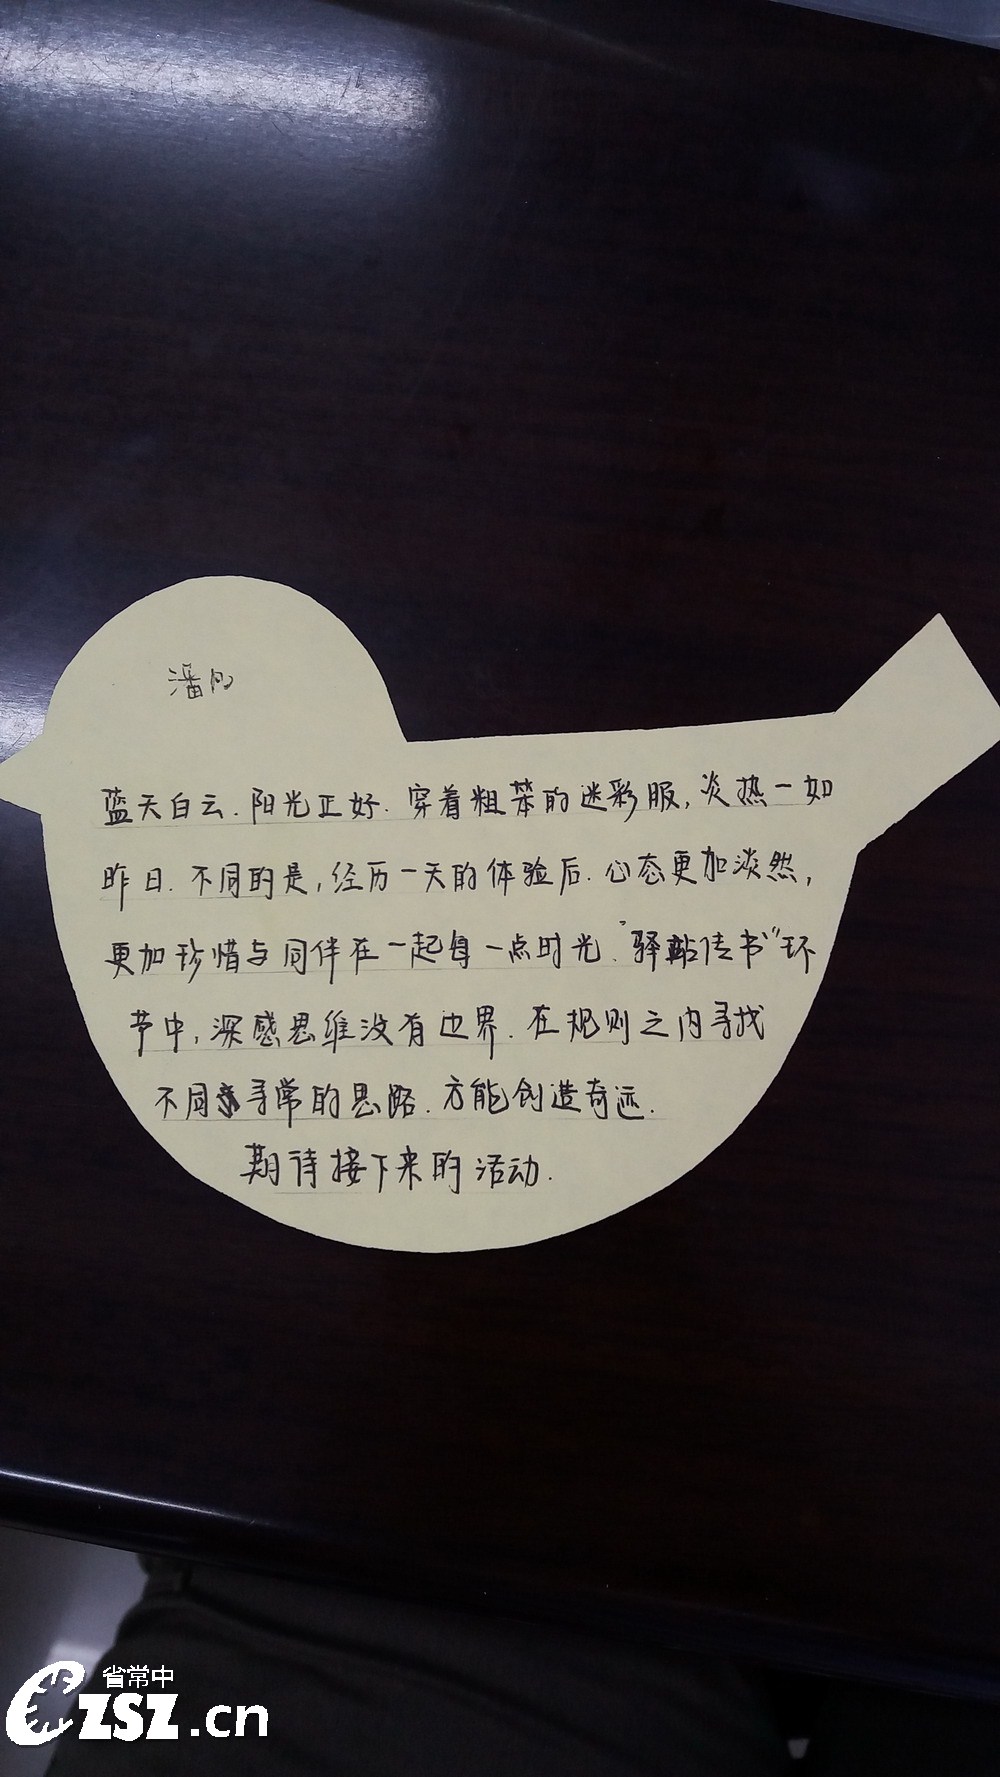 潘
蓝天白云.阳光正好.穿着粗笨的迷彩服,炎热一如
昨日.不同的是,经历一天的体验后.心态更加淡然,
更加珍惜与同伴在一起每一点时光."驿站传书"环
节中,深感思维没有边界.在规则之内寻找
不同寻常的思路.方能创造奇迹.
期待接下来的活动.
省常中
CZSZ.cn